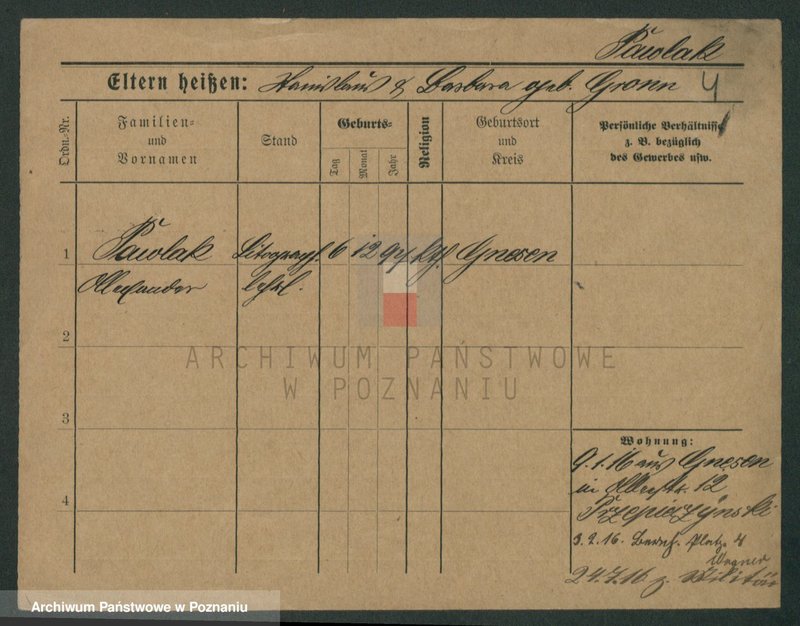 Pawlak
Eltern heißen: Stanislaus & Barbara geb. Gronn 4
Ordn.-Nr.
Familien- und Vornamen
Stand
Geburts-
Tag
Monat
Jahr
Religion
Geburtsort und Kreis
Persönliche Verhältnisse z. B. bezüglich des Gewerbes usw.
1 Pawlak Litograph. 6 12 97 kth. Gnesen
Alexander lehrl.
2
ARCHIWUM PAŃSTWOWE
W POZNANIU
3
Wohnung:
9.1.16 aus Gnesen
in 12
Przepierzynski
4
3.2.16. Bernh. Platz 4
Wegner
24.7.16 z. Militär
Archiwum Państwowe w Poznaniu